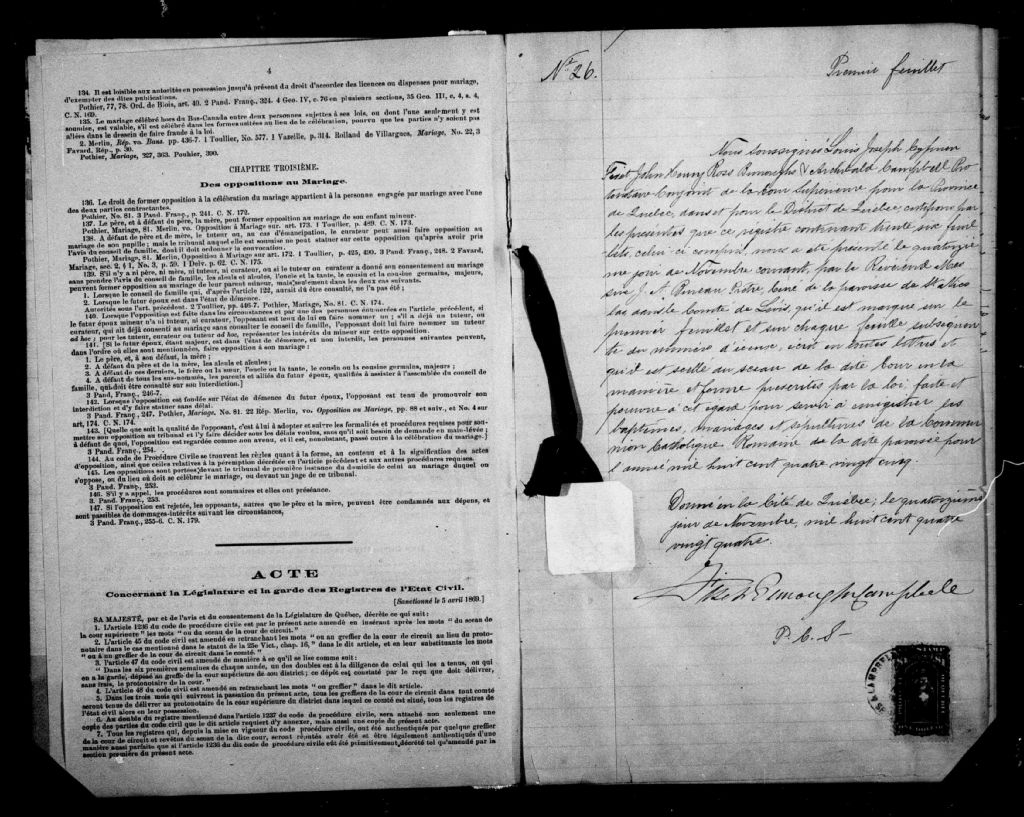 4
134. Il est loisible aux autorités en possession jusqu'à présent du droit d'accorder des licences ou dispenses pour mariage,
d'exempter des dites publications.
Pothier, 77, 78. Ord. de Blois, art. 40. 2 Pand. Franç., 324. 4 Geo. IV, c. 76 en plusieurs sections, 35 Geo. III, c, 4, s. 4,
C. N. 169.
135. Le mariage célébré hors du Bas-Canada entre deux personnes sujettes à ses lois, ou dont l'une seulement y est
soumise, est valable, s'il est célébré dans les formes usitées au lieu de la célébration, pourvu que les parties n'y soient pas
allées dans le dessein de faire fraude à la loi.
2. Merlin, Rép. vo. Bans. pp. 436-7. 1 Toullier, No. 577. 1 Vazeille, p. 314. Rolland de Villargues, Mariage, No. 22, 3
Favard, Rép., p. 30.
Pothier, Mariage, 327, 363. Pouhier, 390.
CHAPITRE TROISIÈME.
Des oppositions au Mariage.
136. Le droit de former opposition à la célébration du mariage appartient à la personne engagée par mariage avec l'une
des deux parties contractantes.
Pothier, No. 81. 3 Pand. Franç., p. 241. C. N. 172.
137. Le père, et à défaut du père, la mère, peut former opposition au mariage de son enfant mineur.
Pothier, Mariage, 81. Merlin, vo. Opposition à Mariage sur. art. 173. 1 Toullier, p. 489. C. N. 173.
138. A défaut de père et de mère, le tuteur ou, au cas d'émancipation, le curateur peut aussi faire opposition au
mariage de son pupille; mais le tribunal auquel elle est soumise ne peut statuer sur cette opposition qu'après avoir pris
l'avis du conseil de famille, dont il doit ordonner la convocation.
Pothier, Mariage, 81. Merlin, Opposition à Mariage sur art. 172. 1 Toullier, p. 425, 490. 3 Pand. Franç., 248. 2 Favard,
Mariage, sec. 2, § 1, No. 3, p. 59. 1 Delv. p. 62. C. N. 175.
139. S'il n'y a ni père, ni mère, ni tuteur, ni curateur, ou si le tuteur ou curateur a donné son consentement au mariage
sans prendre l'avis du conseil de famille, les aïeuls et aïeules, l'oncle et la tante, le cousin et la cousine germains, majeurs,
peuvent former opposition au mariage de leur parent mineur, mais seulement dans les deux cas suivants.
1. Lorsque le conseil de famille qui, d'après l'article 122, aurait dû être consulté, ne l'a pas été;
2. Lorsque le futur époux est dans l'état de démence.
Autorités sous l'art. précédent. 2 Toullier, pp. 446-7. Pothier, Mariage, No. 81. C. N. 174.
140. Lorsque l'opposition est faite dans les circonstances et par une des personnes énumérées en l'article précédent, si
le futur époux mineur n'a ni tuteur, ni curateur, l'opposant est tenu de lui en faire nommer un; s'il a déjà un tuteur, ou
curateur, qui ait déjà consenti au mariage sans consulter le conseil de famille, l'opposant doit lui faire nommer un tuteur
ad hoc; pour les tuteur, curateur ou tuteur ad hoc, représenter les intérêts du mineur sur cette opposition.
141. [Si le futur époux, étant majeur, est dans l'état de démence, et non interdit, les personnes suivantes peuvent,
dans l'ordre où elles sont mentionnées, faire opposition à son mariage:
1. Le père, et, à son défaut, la mère;
2. A défaut du père et de la mère, les aïeuls et aïeules;
3. A défaut de ces derniers, le frère ou la sœur, l'oncle ou la tante, le cousin ou la cousine germains, majeurs;
4. A défaut de tous les sus-nommés, les parents et alliés du futur époux, qualifiés à assister à l'assemblée du conseil de
famille, qui doit être consulté sur son interdiction.]
3 Pand. Franç., 246-7.
142. Lorsque l'opposition est fondée sur l'état de démence du futur époux, l'opposant est tenu de promouvoir son
interdiction et d'y faire statuer sans délai.
3 Pand. Franç., 247. Pothier, Mariage, No. 81. 22 Rép. Merlin, vo. Opposition au Mariage, pp. 88 et suiv., et No. 4 sur
art, 174. C. N. 174.
143. [Quelque que soit la qualité de l'opposant, c'est à lui à adopter et suivre les formalités et procédures requises pour sou-
mettre son opposition au tribunal et l'y faire décider sous les délais voulus, sans qu'il soit besoin de demande en main-levée;
à défaut de quoi, l'opposition est regardée comme non avenu, et il est, nonobstant, passé outre à la célébration du mariage.]
3 Pand. Franç., 254.
144. Au code de Procédure Civile se trouvent les règles quant à la forme, au contenu et à la signification des actes
d'opposition, ainsi que celles relatives à la péremption décrétée en l'article précédent et aux autres procédures requises.
145. Les oppositions sont portées devant le tribunal de première instance du domicile de celui au mariage duquel on
s'oppose, ou du lieu où doit se célébrer le mariage, ou devant un juge de ce tribunal.
3 Pand. Franç., 253.
146. S'il y a appel, les procédures sont sommaires et elles ont préséance.
3 Pand. Franç., 253.
147. Si l'opposition est rejetée, les opposants, autres que le père et la mère, peuvent être condamnés aux dépens, et
sont passibles de dommages-intérêts suivant les circonstances,
3 Pand. Franç., 255-6. C. N. 179.
ACTE
Concernant la Législature et la garde des Registres de l'Etat Civil.
[Sanctionné le 5 avril 1869.]
SA MAJESTÉ, par et de l'avis et du consentement de la Législature de Québec, décrète ce qui suit:
1. L'article 1236 du code de procédure civile est par le présent acte amendé en insérant après les mots "du sceau de
la cour supérieure" les mots "ou du sceau de la cour de circuit."
2. L'article 45 du code civil est amendé en retranchant les mots "ou au greffier de la cour de circuit au lieu du proto-
notaire dans le cas mentionné dans le statut de la 25e Vict., chap. 16," dans le dit article, et en leur substituants les mots
"ou à un greffier de la cour de circuit dans le comté."
3. l'article 47 du code civil est amendé de manière à ce qu'il se lise comme suit:
"Dans les six premières semaines de chaque année, un des doubles est à la diligence de celui qui les a tenus, ou qui
en a la garde, déposé au greffe de la cour supérieure de son district; ce dépôt est constaté par le reçu que doit délivrer,
sans frais, le protonotaire de la cour."
4. L'article 48 du code civil est amendé en retranchant les mots "ou greffier" dans le dit article.
5. Dans les trois mois qui suivront la passation du présent acte, tous les greffiers de la cour de circuit dans tout comté
seront tenus de délivrer au protonotaire de la cour supérieure du district dans lequel ce comté est situé, tous les registres de
l'état civil alors en leur possession.
6. Au double du registre mentionné dans l'article 1237 du code de procédure civile, sera attaché non seulement une
copie des parties du code civil que le dit article requiert d'y annexer, mais aussi une copie du présent acte.
7. Tous les registres qui, depuis la mise en vigueur du code procédure civile, ont été authentiqués par quelque greffier
de la cour de circuit et revêtus du sceau de la dite cour, seront réputés avoir été et être légalement authentiqués d'une
manière aussi parfaite que si l'article 1236 du dit code de procédure civile eût été primitivement décrété tel qu'amendé par la
section première du présent acte.
No. 26.
Premier feuillet
Nous soussignés Louis Joseph Cyprien
Fiset, John Henry Ross Burroughs & Archibald Campbell Pro
tonotaire Conjoint de la Cour Supérieure pour la Province
de Québec, dans et pour le District de Québec, certifions par
les présentes que ce registre contenant trente six feuil
lets, celui-ci compris, nous a été présenté le quatorziè
me jour de Novembre courant, par le Révérend Mes
sire J. A. Pineau Ptre, Curé de la paroisse de St
dans le Comté de qu'il est marqué sur le
premier feuillet et sur chaque feuille subséquen
te du numéro d'iceux, écrit en toutes lettres et
qu'il est scellé du sceau de la dite Cour en la
manière et forme prescrites par la loi faite et
pourvue à cet égard pour servir à enregistrer les
baptêmes, mariages et sépultures de la Commun
nion Catholique Romaine de la dite paroisse pour
l'année mil huit cent quatre vingt cinq.
Donné en la Cité de Québec, le quatorzième
jour de Novembre, mil huit cent quatre
vingt quatre.
Fiset Burroughs Campbell
P. C. S-
STAMP